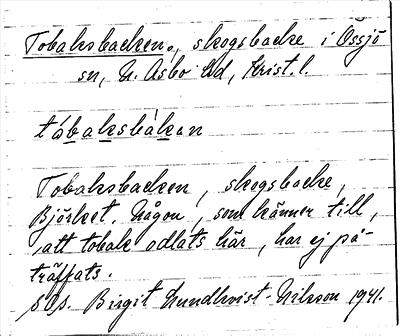 Tobaksbacken, skogsbacke i Össjö
sn, N. Åsbo hd, Krist. l.
tóbaksbákan
Tobaksbacken, skogsbacke,
Björket. Någon, som känner till,
att tobak odlats här, har ej på-
träffats.
s. Birgit Lundkvist-Nilsson 1941.